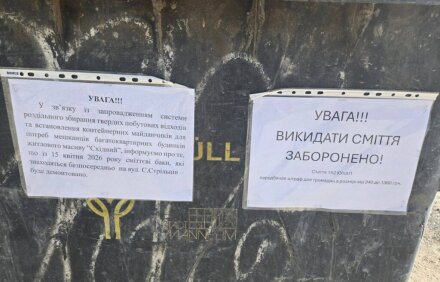 УВАГА!!!
У зв'язку із запровадженням системи
роздільного збирання твердих побутових відходів
та встановлення контейнерних майданчиків для
потреб мешканців багатоквартирних будинків
житлового масиву "Східний", інформуємо про те,
що із 15 квітня 2026 року сміттєві баки, які
знаходяться безпосередньо на вул. С.Стрільців
буде демонтовано.
ÜLL
УВАГА!!!
ВИКИДАТИ СМІТТЯ
ЗАБОРОНЕНО!
передбачає штраф для громадян в розмірі від 340 до 1360 грн.